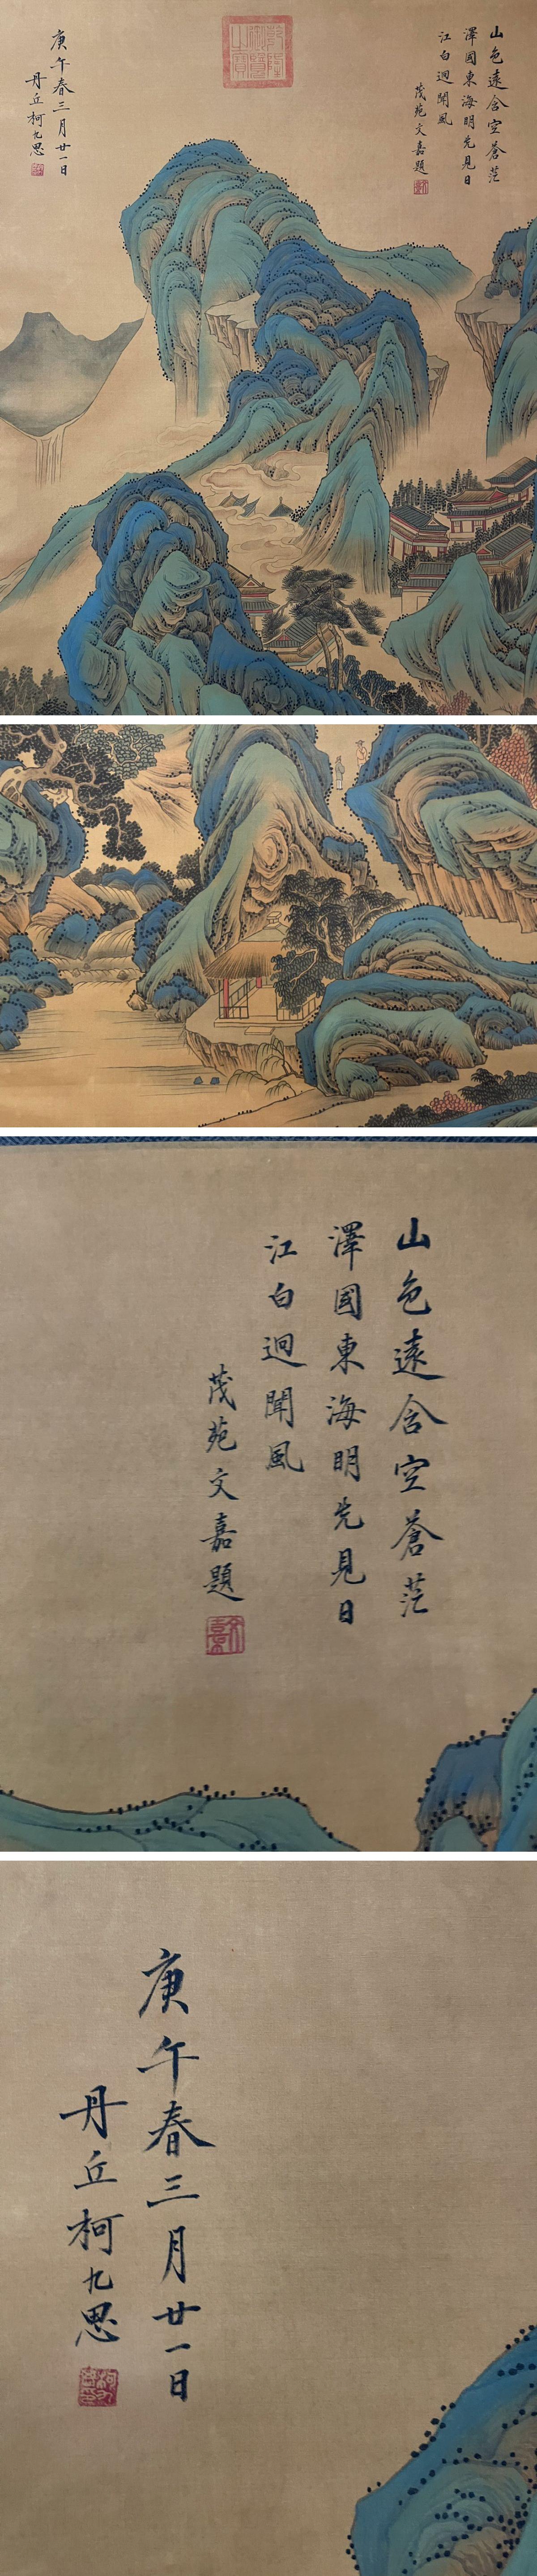 山色遠含空蒼茫
澤國東海明先見日
江白迥聞風
茂苑文嘉題
乾隆
御覽
之寶
庚午春三月廿一日
丹丘柯九思
山色遠含空蒼茫
澤國東海明先見日
江白迥聞風
茂苑文嘉題
庚午春三月廿一日
丹丘柯九思